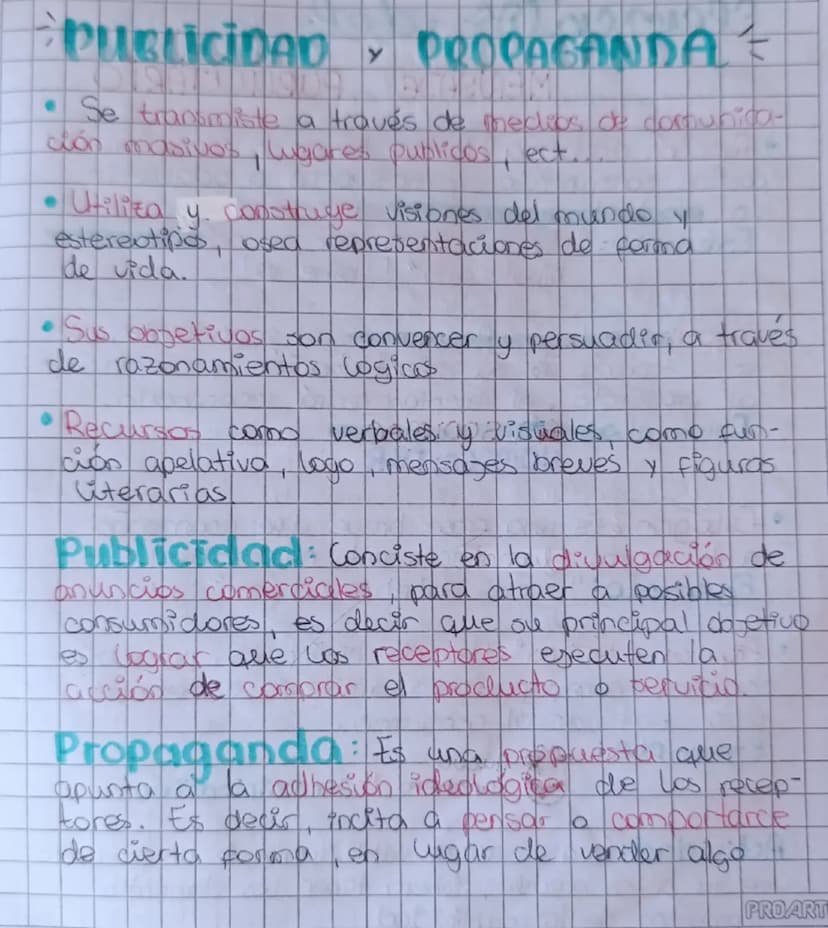 PUBLICIDAD y PROPAGANDA
• Se transmiste a través de medios de comunica-
ción masivos, lugares publicos, ect...
• Utiliza y construye visiones del mundo y
estereotipos, osea representaciones de forma
de vida.
• Sus objetivos son convencer y persuadir, a través
de razonamientos logicos
• Recursos como verbales y visuales, como fun-
ción apelativa, logo, mensajes breves y figuras
literarias
Publicidad: Conciste en la divulgación de
anuncios comerciales, para atraer a posibles
consumidores, es decir que su principal objetivo
es lograr que los receptores ejecuten la
acción de comprar el producto o servicio.
Propaganda: Es una propuesta que
apunta a la adhesión ideologica de los recep-
tores. Es decir, incita a pensar o comportarce
de cierta forma, en lugar de vender algo
PROART